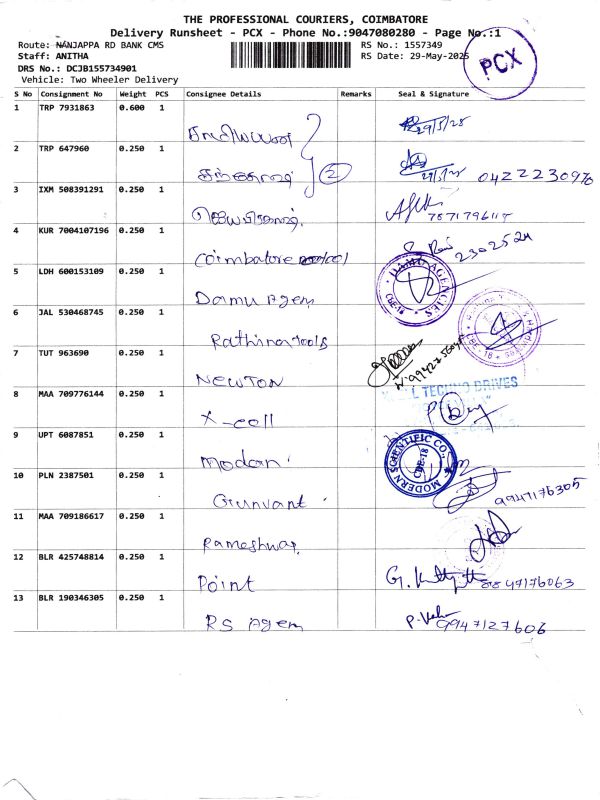 THE PROFESSIONAL COURIERS, COIMBATORE
Delivery Runsheet - PCX - Phone No.:9047080280 - Page No.:1
Route: NANJAPPA RD BANK CMS
RS No.: 1557349
Staff: ANITHA
RS Date: 29-May-2025
DRS No.: DCJB155734901
Vehicle: Two Wheeler Delivery
PCX
S No Consignment No Weight PCS Consignee Details Remarks Seal & Signature
1 TRP 7931863 0.600 1 29/5/25
2 TRP 647960 0.250 1 2 29/5/25 0422230970
3 IXM 508391291 0.250 1 7871796117
4 KUR 7004107196 0.250 1 Coimbatore 2302524
5 LDH 600153109 0.250 1 Damu Agem DAMU AGENCIES CBE-18
6 JAL 530468745 0.250 1 Rathinatools CBE-18
7 TUT 963690 0.250 1 NEWTON
8 MAA 709776144 0.250 1 X-cell TECHNO DRIVES
9 UPT 6087851 0.250 1 Modan MODERN SCIENTIFIC CO. CBE-18
10 PLN 2387501 0.250 1 Gunvant 9947176305
11 MAA 709186617 0.250 1 Rameshwar
12 BLR 425748814 0.250 1 Point 8847176063
13 BLR 190346305 0.250 1 RS Agem 9947127606